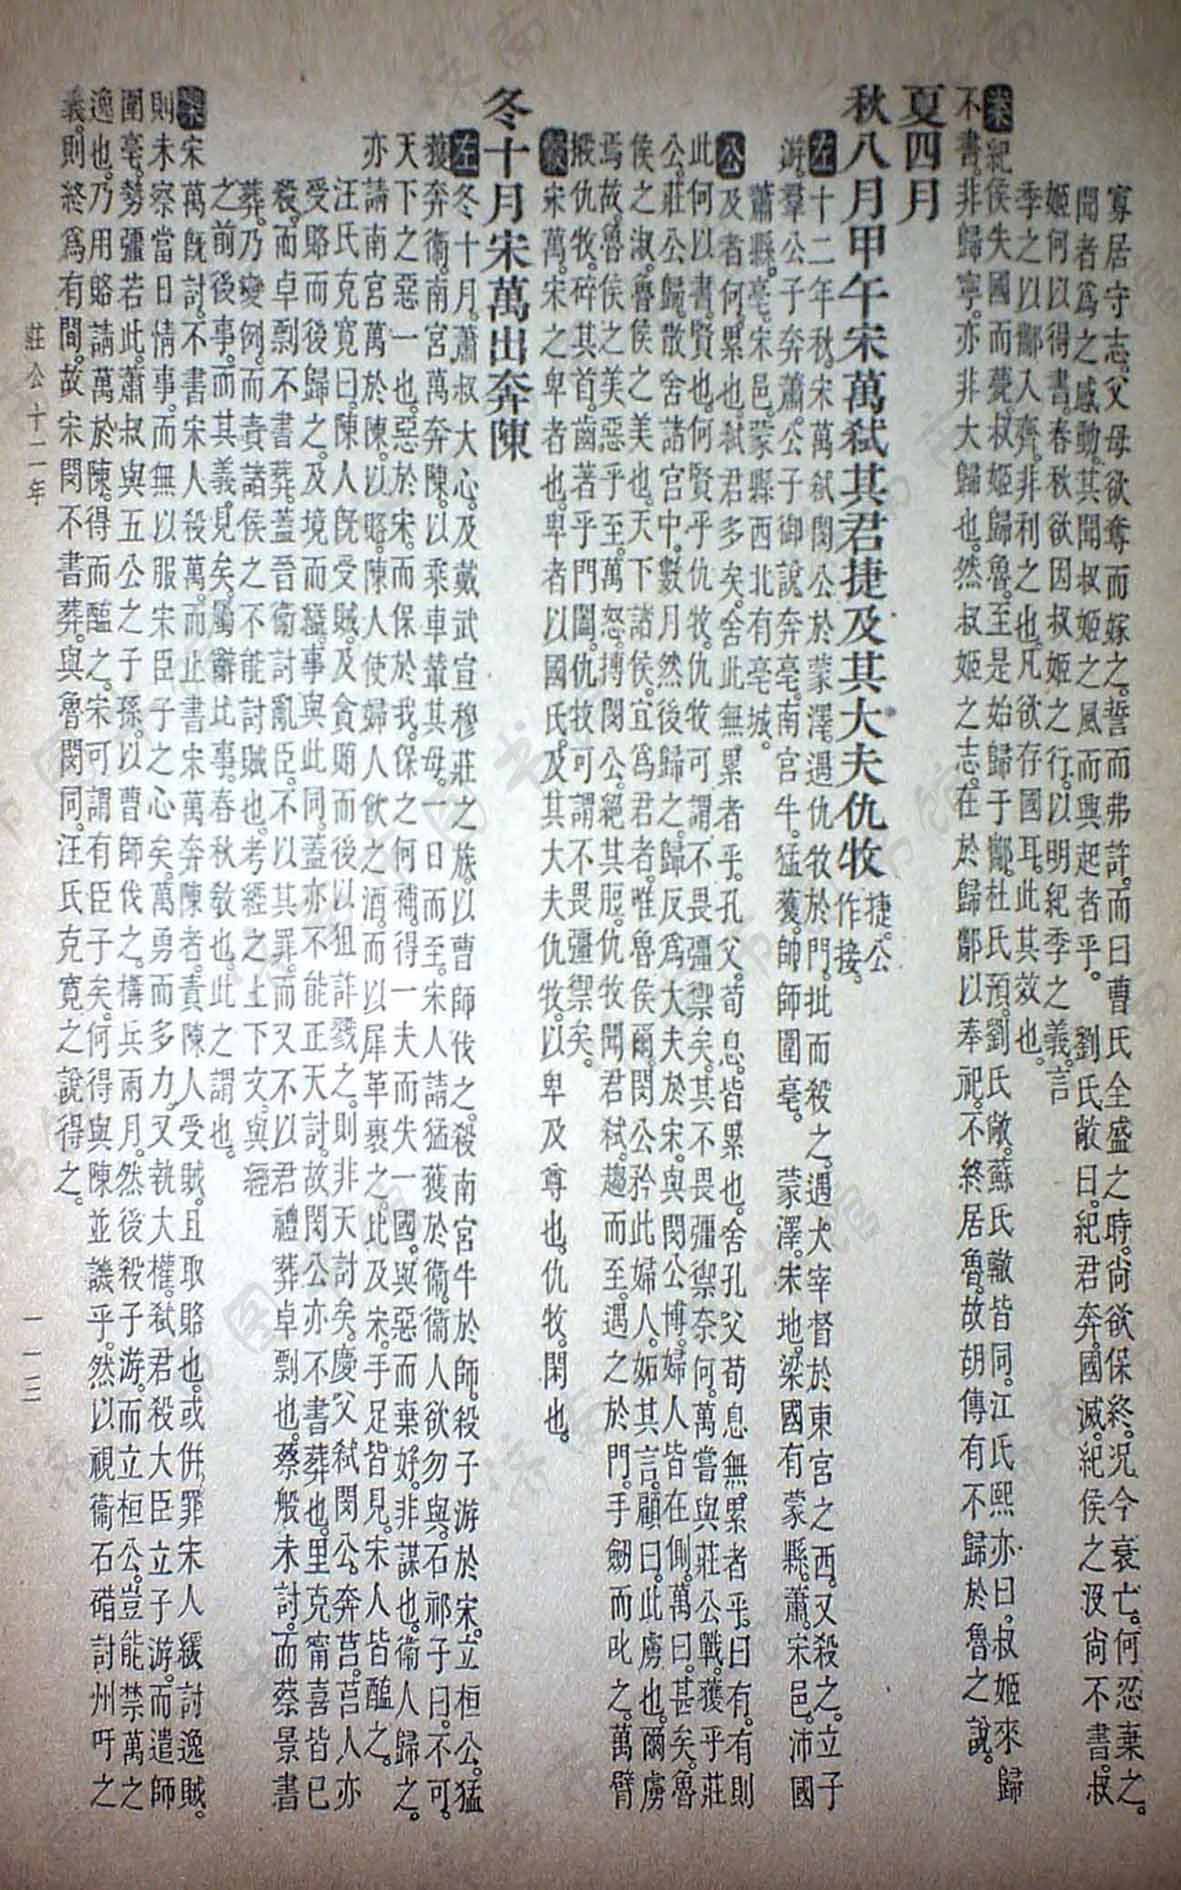 寡居守志。父母欲奪而嫁之。誓而弗許。而曰曹氏全盛之時。尚欲保終。況今衰亡。何忍棄之。
聞者爲之感動。其聞叔姬之風而興起者乎。　劉氏敞曰。紀君奔。國滅。紀侯之沒尚不書。叔
姬何以得書。春秋欲因叔姬之行。以明紀季之義。言
季之以酅入齊。非利之也。凡欲存國耳。此其效也。
案紀侯失國而薨。叔姬歸魯。至是始歸于酅。杜氏預。劉氏敞。蘇氏轍皆同。江氏熙亦曰。叔姬來歸
不書。非歸寧。亦非大歸也。然叔姬之志。在於歸酅以奉祀。不終居魯。故胡傳有不歸於魯之說。
夏四月
秋八月甲午宋萬弒其君捷及其大夫仇牧捷。公
作接。
左十二年秋。宋萬弒閔公於蒙澤。遇仇牧於門。批而殺之。遇大宰督於東宮之西。又殺之。立子
游。羣公子奔蕭。公子御說奔亳。南宮牛。猛獲。帥師圍亳。　蒙澤。宋地。梁國有蒙縣。蕭。宋邑。沛國
蕭縣。亳。宋邑。蒙縣西北有亳城。
公及者何。累也。弒君多矣。舍此無累者乎。孔父。荀息。皆累也。舍孔父荀息無累者乎。曰有。有則
此何以書。賢也。何賢乎仇牧。仇牧可謂不畏彊禦矣。其不畏彊禦奈何。萬嘗與莊公戰。獲乎莊
公。莊公歸。散舍諸宮中。數月然後歸之。歸反爲大夫於宋。與閔公博。婦人皆在側。萬曰。甚矣。魯
侯之淑。魯侯之美也。天下諸侯。宜爲君者。唯魯侯爾。閔公矜此婦人。妬其言。顧曰。此虜也。爾虜
焉故。魯侯之美惡乎至。萬怒。搏閔公。絕其脰。仇牧聞君弒。趨而至。遇之於門。手劒而叱之。萬臂
摋仇牧。碎其首。齒著乎門闔。仇牧可謂不畏彊禦矣。
穀宋萬。宋之卑者也。卑者以國氏。及其大夫仇牧。以卑及尊也。仇牧。閑也。
冬十月宋萬出奔陳
左冬十月。蕭叔大心。及戴武宣穆莊之族。以曹師伐之。殺南宮牛於師。殺子游於宋。立桓公。猛
獲奔衞。南宮萬奔陳。以乘車輦其母。一日而至。宋人請猛獲於衞。衞人欲勿與。石祁子曰。不可。
天下之惡一也。惡於宋。而保於我。保之何補。得一夫而失一國。與惡而棄好。非謀也。衞人歸之。
亦請南宮萬於陳。以賂。陳人使婦人飲之酒。而以犀革裹之。比及宋。手足皆見。宋人皆醢之。
汪氏克寬曰。陳人既受賊。及貪賄而後以狙詐戮之。則非天討矣。慶父弒閔公。奔莒。莒人亦
受賂而後歸之。及境而縊。事與此同。蓋亦不能正天討。故閔公亦不書葬也。里克甯喜皆已
殺。而卓剽不書葬。蓋吾衞討亂臣。不以其罪。而又不以君禮葬卓剽也。蔡般未討。而蔡景書
葬。乃變例。而責諸侯之不能討賊也。考經之上下文。與經
之前後事。而其義見矣。屬辭比事。春秋敎也。此之謂也。
案宋萬既討。不書宋人殺萬。而止書宋萬奔陳者。責陳人受賊。且取賂也。或併罪宋人緩討逸賊。
則未察當日情事。而無以服宋臣子之心矣。萬勇而多力。又執大權。弒君殺大臣。立子游。而遣師
圍亳。勢彊若此。蕭叔與五公之子孫。以曹師伐之。搆兵兩月。然後殺子游。而立桓公。豈能禁萬之
逸也。乃用賂請萬於陳。得而醢之。宋可謂有臣子矣。何得與陳並譏乎。然以視衞石碏討州吁之
義。則終爲有間。故宋閔不書葬。與魯閔同。汪氏克寬之說得之。
莊公十二年
一一三